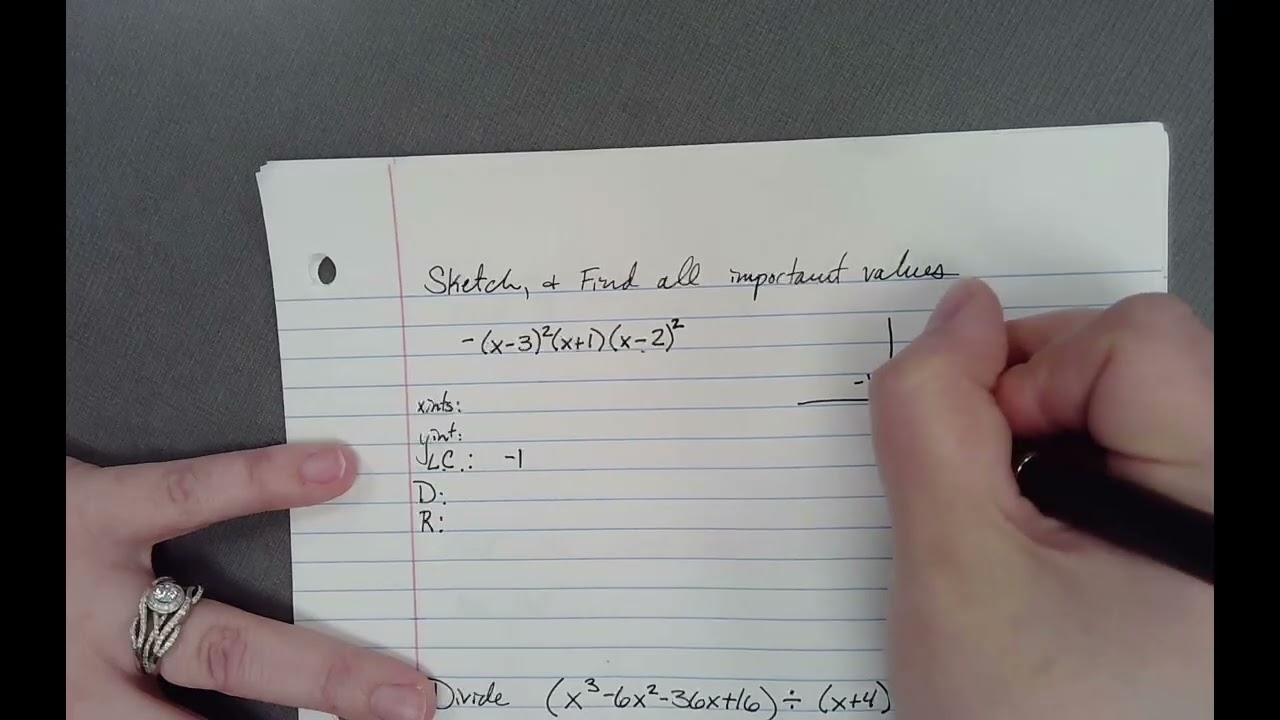 Sketch, & Find all important values
-(x-3)²(x+1)(x-2)²
xints:
yint:
LC.: -1
D:
R:
Divide (x³-6x²-36x+16) ÷ (x+4)